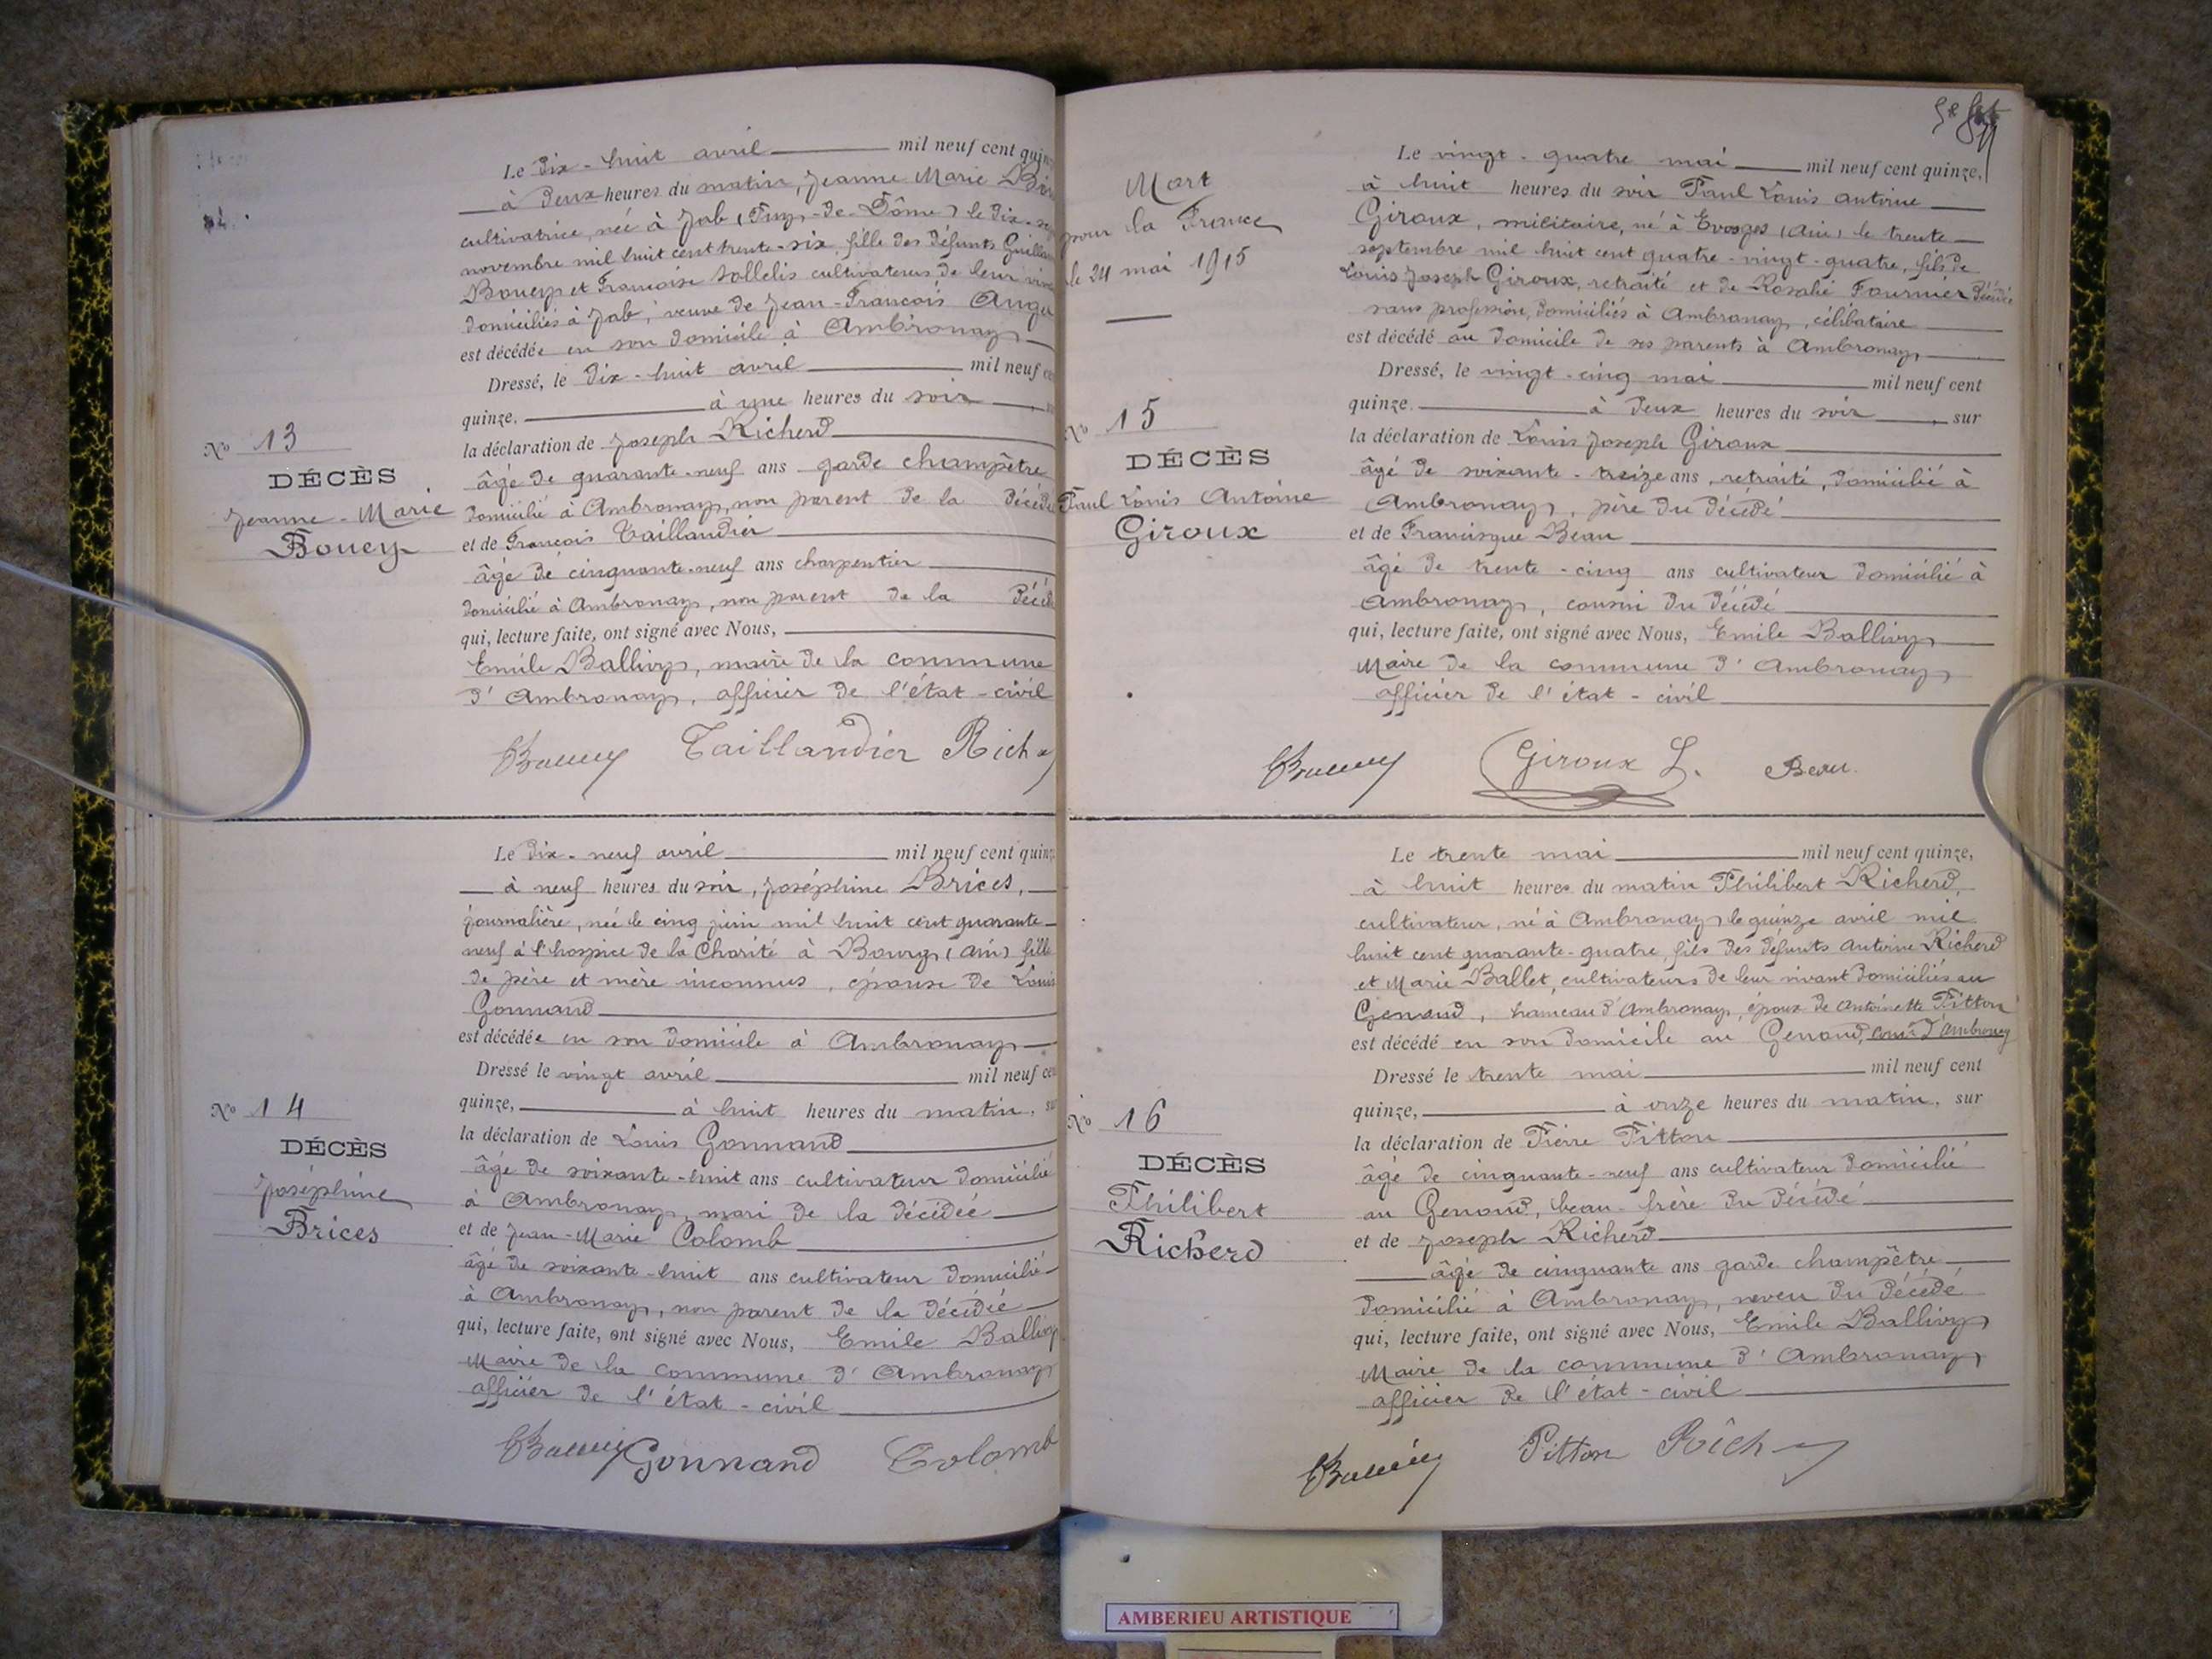 Le dix-huit avril mil neuf cent
à deux heures du matin, Jeanne Marie
cultivatrice, née à Job (Puy-de-Dôme) le dix-
novembre mil huit cent trente-six, fille des défunts
Bouey et Francoise Sollelis cultivateurs de leur
domiciliés à Job, veuve de Jean-Francois
est décédée en son domicile à Ambronay
Dressé, le dix-huit avril mil neuf
quinze. à une heures du soir
la déclaration de Joseph Richerd
âgé de quarante-neuf ans garde champêtre
domicilié à Ambronay, non parent de la
et de Francois Taillandier
âgé de cinquante-neuf ans charpentier
domicilié à Ambronay, non parent de la
qui, lecture faite, ont signé avec Nous,
Emile Ballivy, maire de la commune
d'Ambronay, officier de l'état-civil
Taillandier
No 13
DÉCÈS
Jeanne-Marie
Bouey
Le dix-neuf avril mil neuf cent
à neuf heures du soir, Joséphine Brices,
journalière, née le cinq juin mil huit cent quarante-
neuf à l'hospice de la Charité à Bourg (Ain) fille
de père et mère inconnus, épouse de Louis
Gonnand
est décédée en son domicile à Ambronay
Dressé le vingt avril mil neuf
quinze, à huit heures du matin,
la déclaration de Louis Gonnand
âgé de soixante-huit ans cultivateur domicilié
à Ambronay, mari de la décédée
et de Jean-Marie Colomb
âgé de soixante-huit ans cultivateur domicilié
à Ambronay, non parent de la décédée
qui, lecture faite, ont signé avec Nous, Emile Ballivy
Maire de la commune d'Ambronay
officier de l'état-civil
Gonnand Colomb
No 14
DÉCÈS
Joséphine
Brices
Mort
pour la France
le 24 mai 1915
Le vingt-quatre mai mil neuf cent quinze,
à huit heures du soir Paul Louis Antoine
Giroux, militaire, né à Evosges (Ain) le trente
septembre mil huit cent quatre-vingt-quatre, fils de
Louis Joseph Giroux, retraité et de Rosalie Fournier
sans profession, domiciliés à Ambronay, célibataire
est décédé au domicile de ses parents à Ambronay,
Dressé, le vingt-cinq mai mil neuf cent
quinze. à deux heures du soir, sur
la déclaration de Louis Joseph Giroux
âgé de soixante-treize ans, retraité, domicilié à
Ambronay, père du décédé
et de Francisque Beau
âgé de trente-cinq ans cultivateur domicilié à
Ambronay, cousin du décédé
qui, lecture faite, ont signé avec Nous, Emile Ballivy
Maire de la commune d'Ambronay
officier de l'état-civil
Giroux L. Beau
No 15
DÉCÈS
Paul Louis Antoine
Giroux
Le trente mai mil neuf cent quinze,
à huit heures du matin Philibert Richerd,
cultivateur, né à Ambronay le quinze avril mil
huit cent quarante-quatre, fils des défunts Antoine Richerd
et Marie Ballet, cultivateurs de leur vivant domiciliés au
Genoud, hameau d'Ambronay, époux de Antoinette Pitton
est décédé en son domicile au Genoud, d'Ambronay
Dressé le trente mai mil neuf cent
quinze, à onze heures du matin, sur
la déclaration de Pierre Pitton
âgé de cinquante-neuf ans cultivateur domicilié
au Genoud, beau-frère du décédé
et de Joseph Richerd
âgé de cinquante ans garde champêtre
domicilié à Ambronay, neveu du décédé
qui, lecture faite, ont signé avec Nous, Emile Ballivy
Maire de la commune d'Ambronay
officier de l'état-civil
Pitton
No 16
DÉCÈS
Philibert
Richerd
AMBERIEU ARTISTIQUE